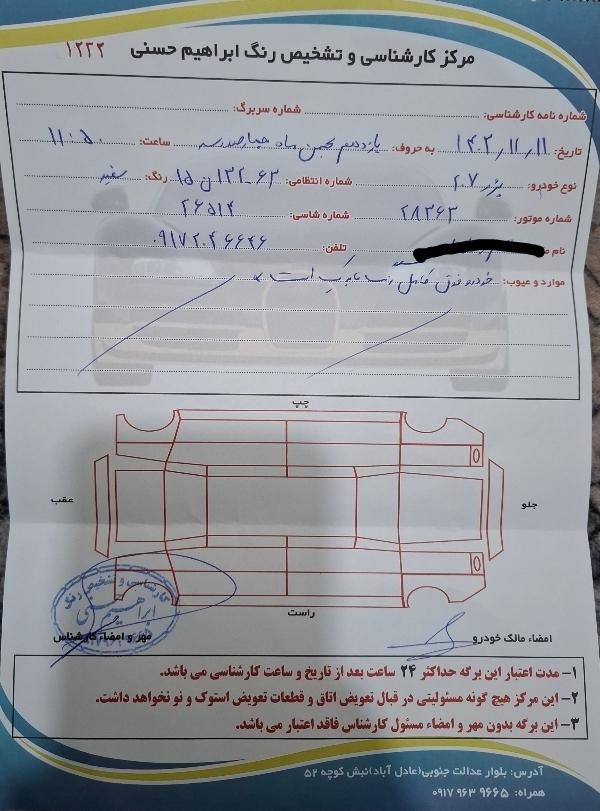 مرکز کارشناسی و تشخیص رنگ ابراهیم حسنی ۱۲۲۲
شماره نامه کارشناسی: شماره سربرگ:
تاریخ: ۱۴۰۲/۱۱/۱۱ به حروف: یازدهم بهمن ماه چهارصد ساعت: ۱۱:۵۰
نوع خودرو: پژو ۲۰۷ شماره انتظامی: ۶۳-۱۳۲ ن ۱۵ رنگ: سفید
شماره موتور: ۲۸۳۶۳ شماره شاسی: ۲۶۵۱۴
نام تلفن: ۰۹۱۷۲۰۴۶۶۲۶
موارد و عیوب: خودرو فوق کامل است
چپ
عقب
جلو
راست
کارشناسی و تشخیص رنگ
ابراهیم حسنی
مهر و امضاء کارشناس
امضاء مالک خودرو
۱- مدت اعتبار این برگه حداکثر ۲۴ ساعت بعد از تاریخ و ساعت کارشناسی می باشد.
۲- این مرکز هیچ گونه مسئولیتی در قبال تعویض اتاق و قطعات تعویض استوک و نو نخواهد داشت.
۳- این برگه بدون مهر و امضاء مسئول کارشناس فاقد اعتبار می باشد.
آدرس: بلوار عدالت جنوبی(عادل آباد)نبش کوچه ۵۲
همراه: ۰۹۱۷ ۹۶۳ ۹۶۶۵